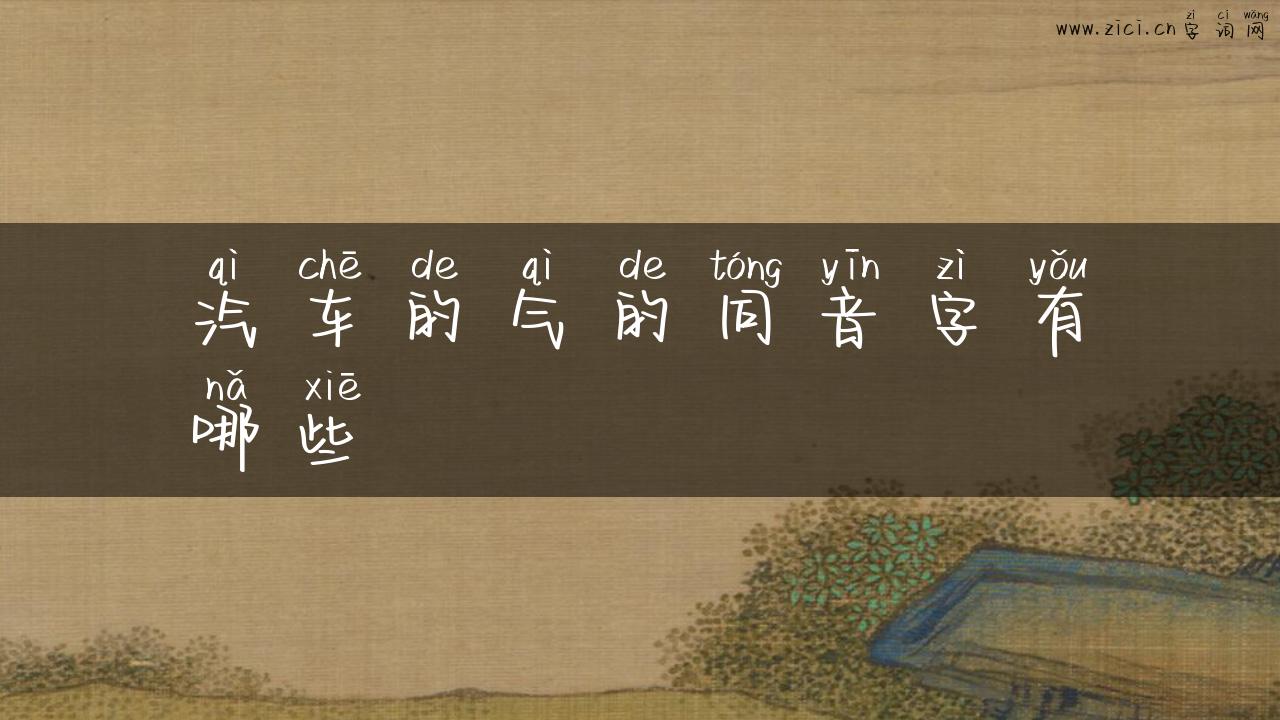 zì cí wǎng
www.zici.cn 字词网
qì chē de qì de tóng yīn zì yǒu
汽车的气的同音字有
nǎ xiē
哪些